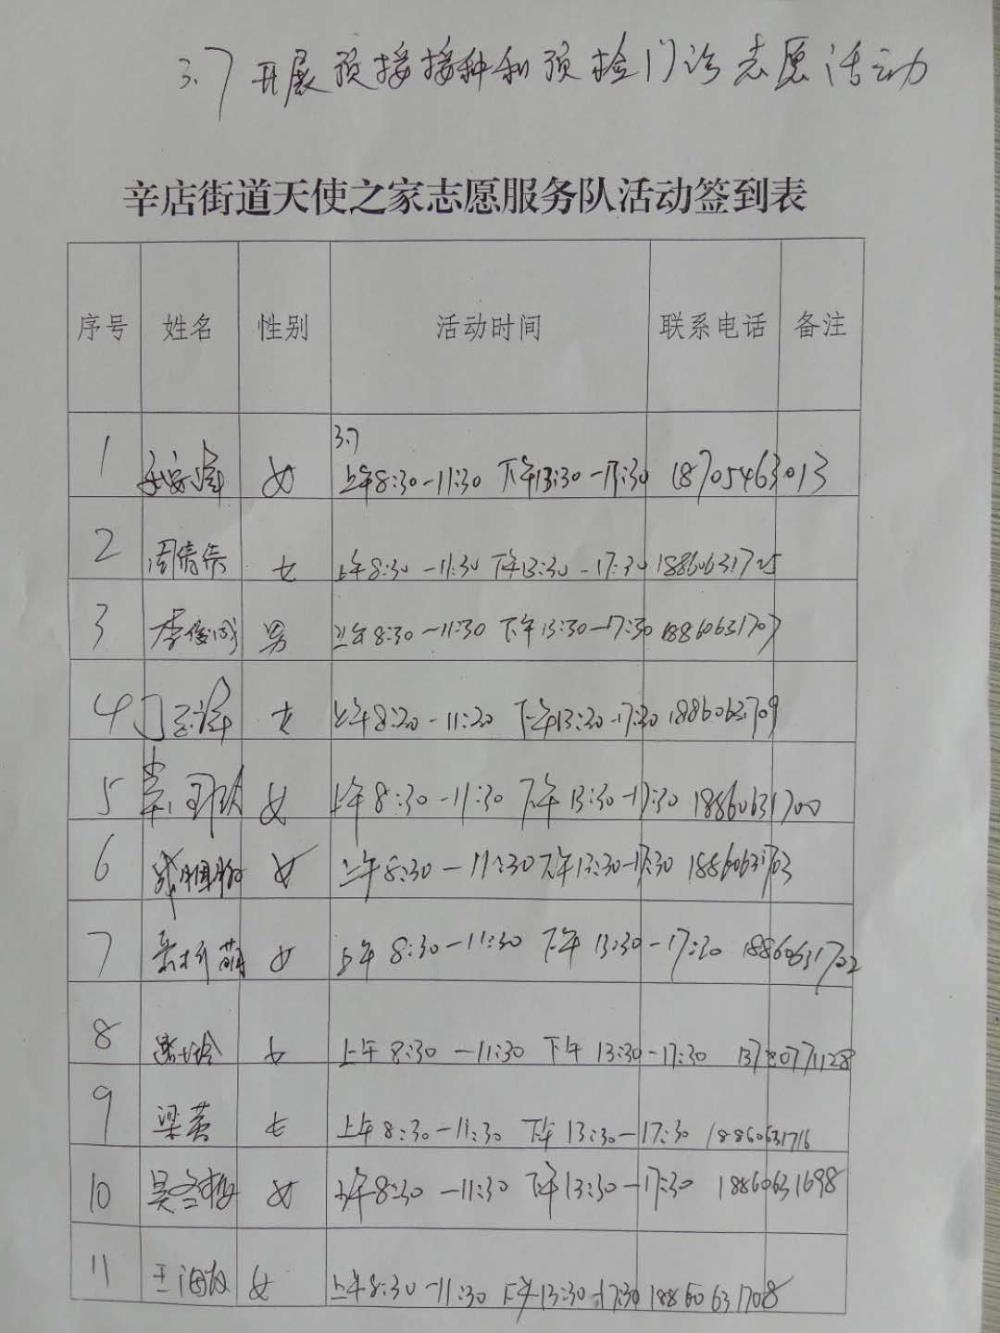 3.7 开展预接接种和预检门诊志愿活动
辛店街道天使之家志愿服务队活动签到表
序号 姓名 性别 活动时间 联系电话 备注
3.7
1 女 上午8:30-11:30 下午13:30-17:30 18705463013
2 周倩倩 女 上午8:30-11:30 下午13:30-17:30 18860631725
3 李俊成 男 上午8:30-11:30 下午13:30-17:30 18860631707
4 女 上午8:30-11:30 下午13:30-17:30 18860631709
5 女 上午8:30-11:30 下午13:30-17:30 18860631700
6 女 上午8:30-11:30 下午13:30-17:30 18860631703
7 女 上午8:30-11:30 下午13:30-17:30 18860631702
8 女 上午8:30-11:30 下午13:30-17:30 13780771128
9 梁英 女 上午8:30-11:30 下午13:30-17:30 18860631716
10 吴冬梅 女 上午8:30-11:30 下午13:30-17:30 18860631698
11 王海 女 上午8:30-11:30 下午13:30-17:30 18860631708